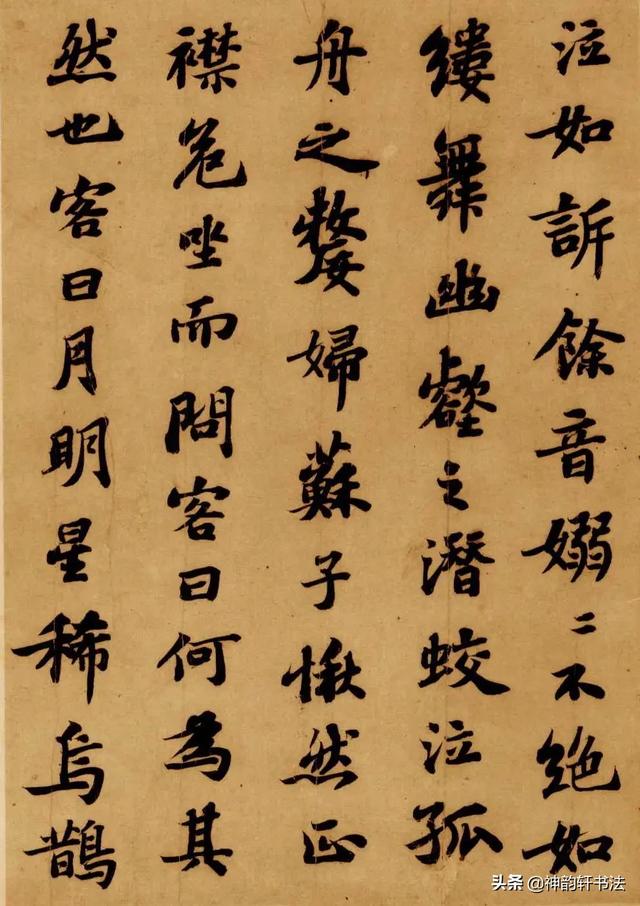 泣如訴餘音嫋〻不絕如
縷舞幽壑之潛蛟泣孤
舟之嫠婦蘇子愀然正
襟危坐而問客曰何為其
然也客曰月明星稀烏鵲
头条 @神韵轩书法